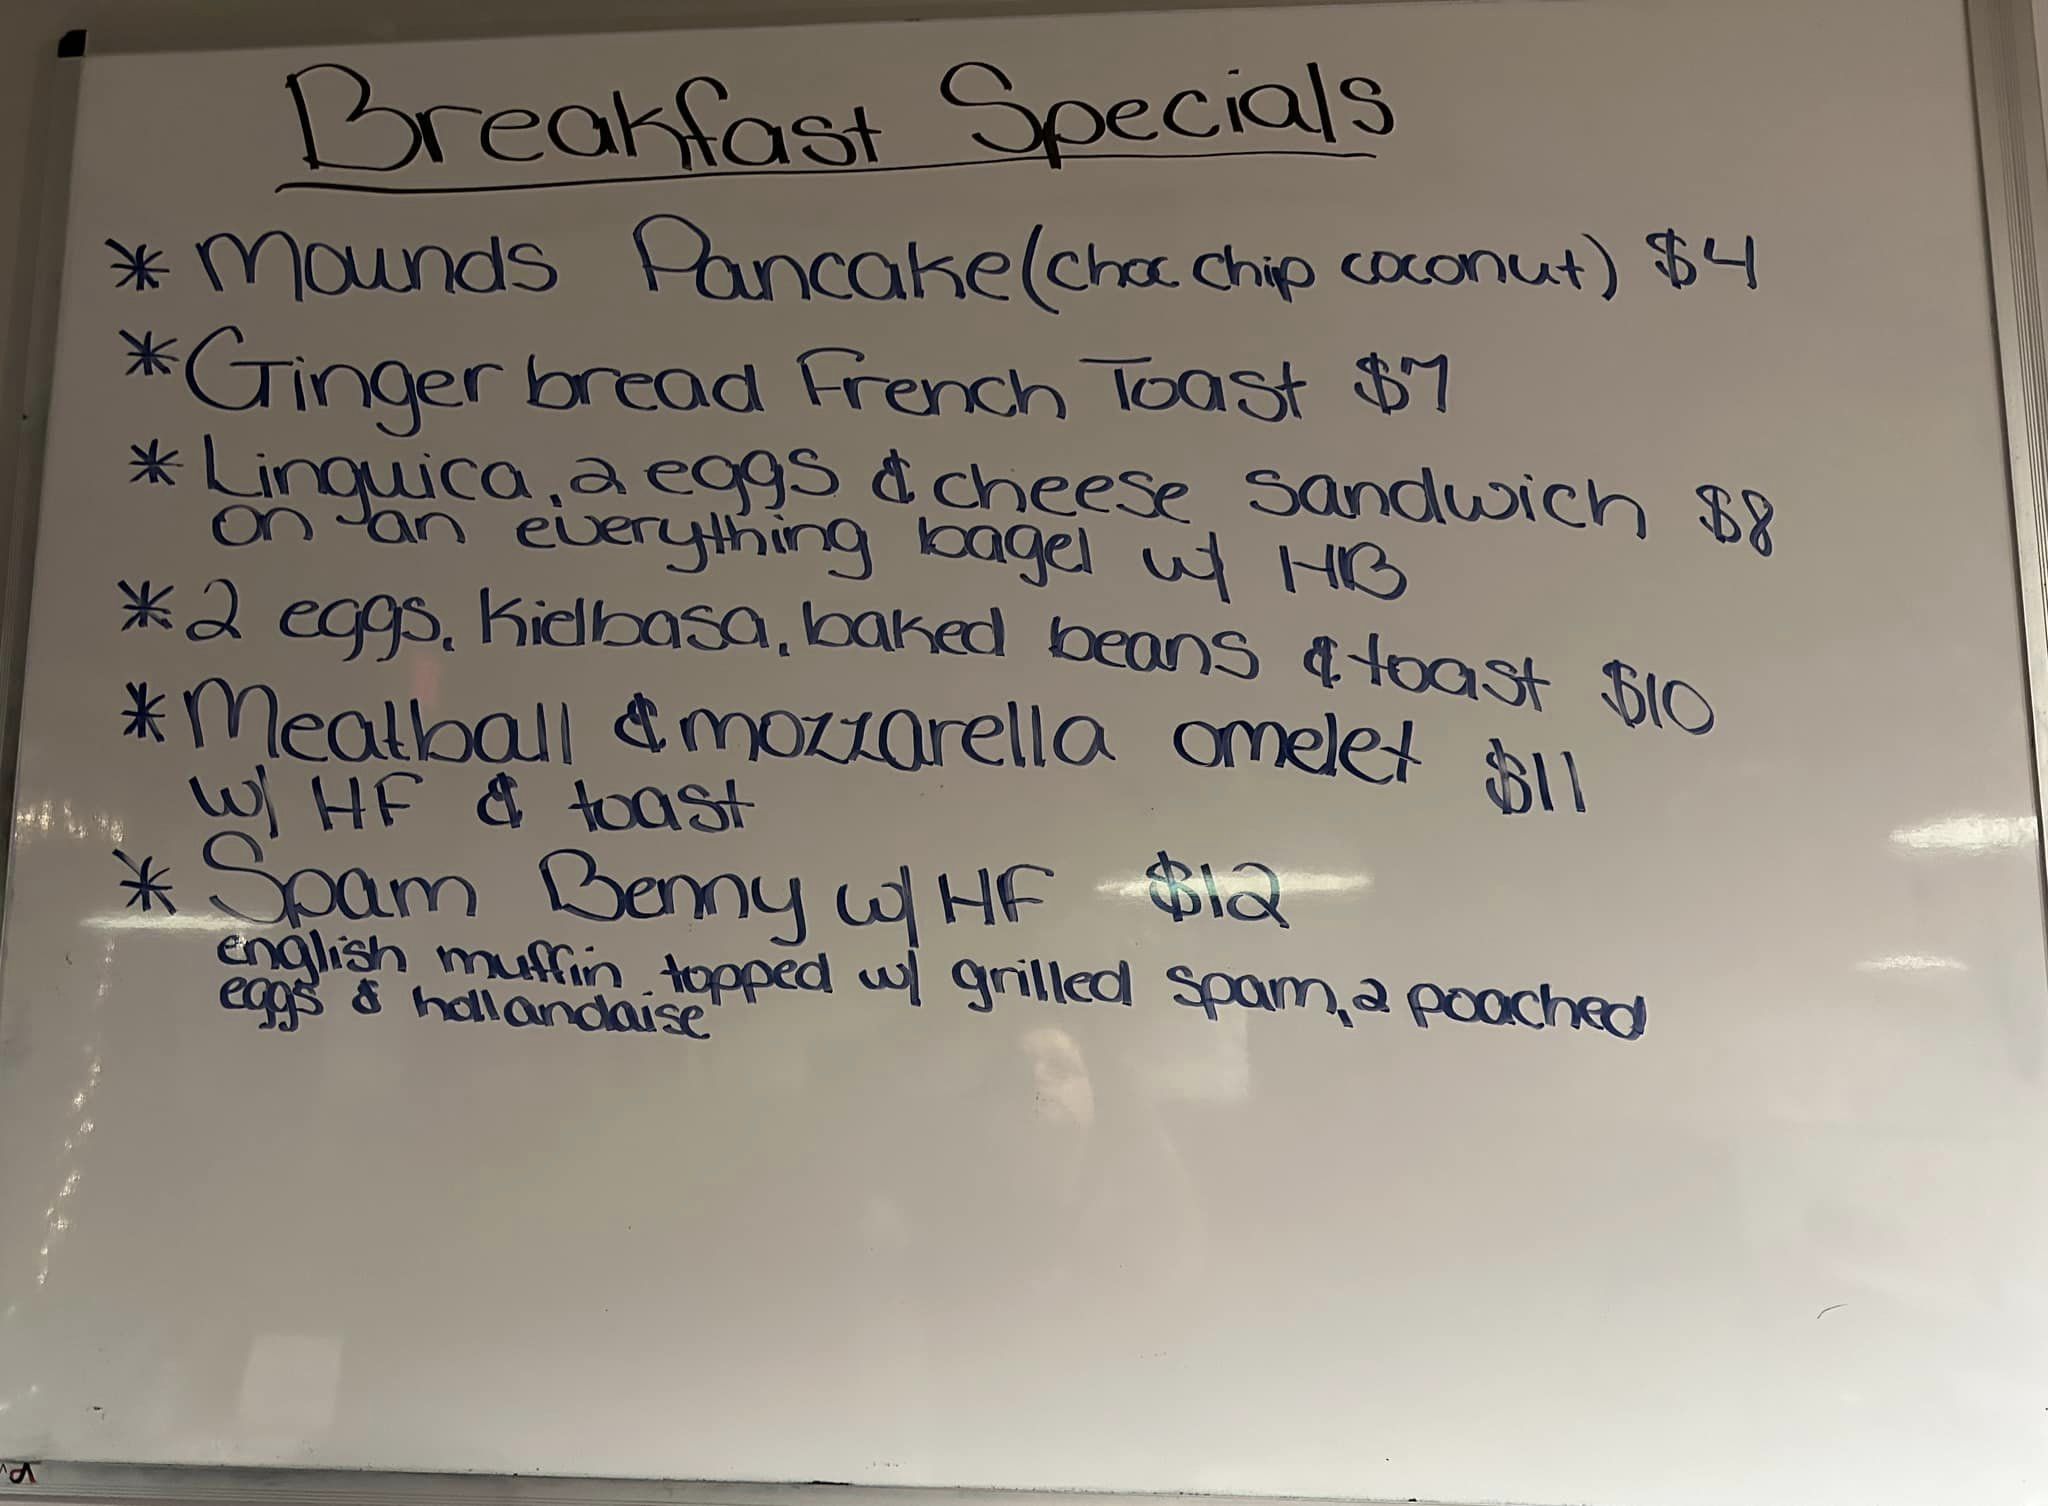 Breakfast Specials
* Mounds Pancake (choc chip coconut) $4
* Gingerbread French Toast $7
* Linguica, 2 eggs & cheese sandwich $8
on an everything bagel w/ HB
* 2 eggs, kielbasa, baked beans & toast $10
* Meatball & mozzarella omelet $11
w/ HF & toast
* Spam Benny w/ HF $12
english muffin topped w/ grilled spam, 2 poached
eggs & hollandaise